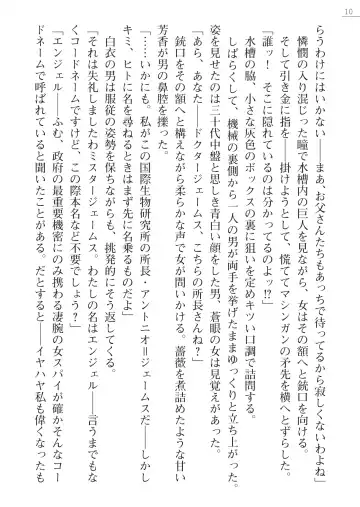 10
らうわけにはいかない――まあ、お父さんたちもあっちで待ってるから寂しくないわよね」
憐憫の入り混じった瞳で水槽内の巨人を見ながら、女はその額へと銃口を向けた。
そして引き金に指を――掛けようとして、慌ててマシンガンの矛先を横へとずらした。
「誰ッ！　そこに隠れているのは分かってるのよッ!?」
水槽の脇、小さな灰色のボックスの裏に狙いを定めキツい口調で詰問する。
しばらくして、機械の裏側から一人の男が両手を挙げたままゆっくりと立ち上がった。
姿を見せたのは三十代中盤と思しき青白い顔をした男、蒼眼の女は見覚えがあった。
「あら、あなた――ドクター・ジェームス、こちらの所長さんね？」
銃口をその額へと構えながら柔らかな声で女が問いかける。薔薇を煮詰めたような甘い
芳香が男の鼻腔をくすぐる。
「……いかにも。私がこの国際生物研究所の所長・アントニオ＝ジェームスだ――しかし
キミ、ヒトに名を尋ねるときはまず先に名乗るものだよ」
白衣の男は服従の姿勢を保ちながらも、挑発的にそう返してくる。
「それは失礼しましたわミスタージェームス。わたしの名はエンジェル――言うまでもな
くコードネームですけど。この際本名など不要でしょう？」
「エンジェル――ふむ、政府の最重要機密にのみ携わる凄腕の女スパイが確かそんなコー
ドネームで呼ばれていると聞いたことがある。だとすると――イヤハヤ私も偉くなったも